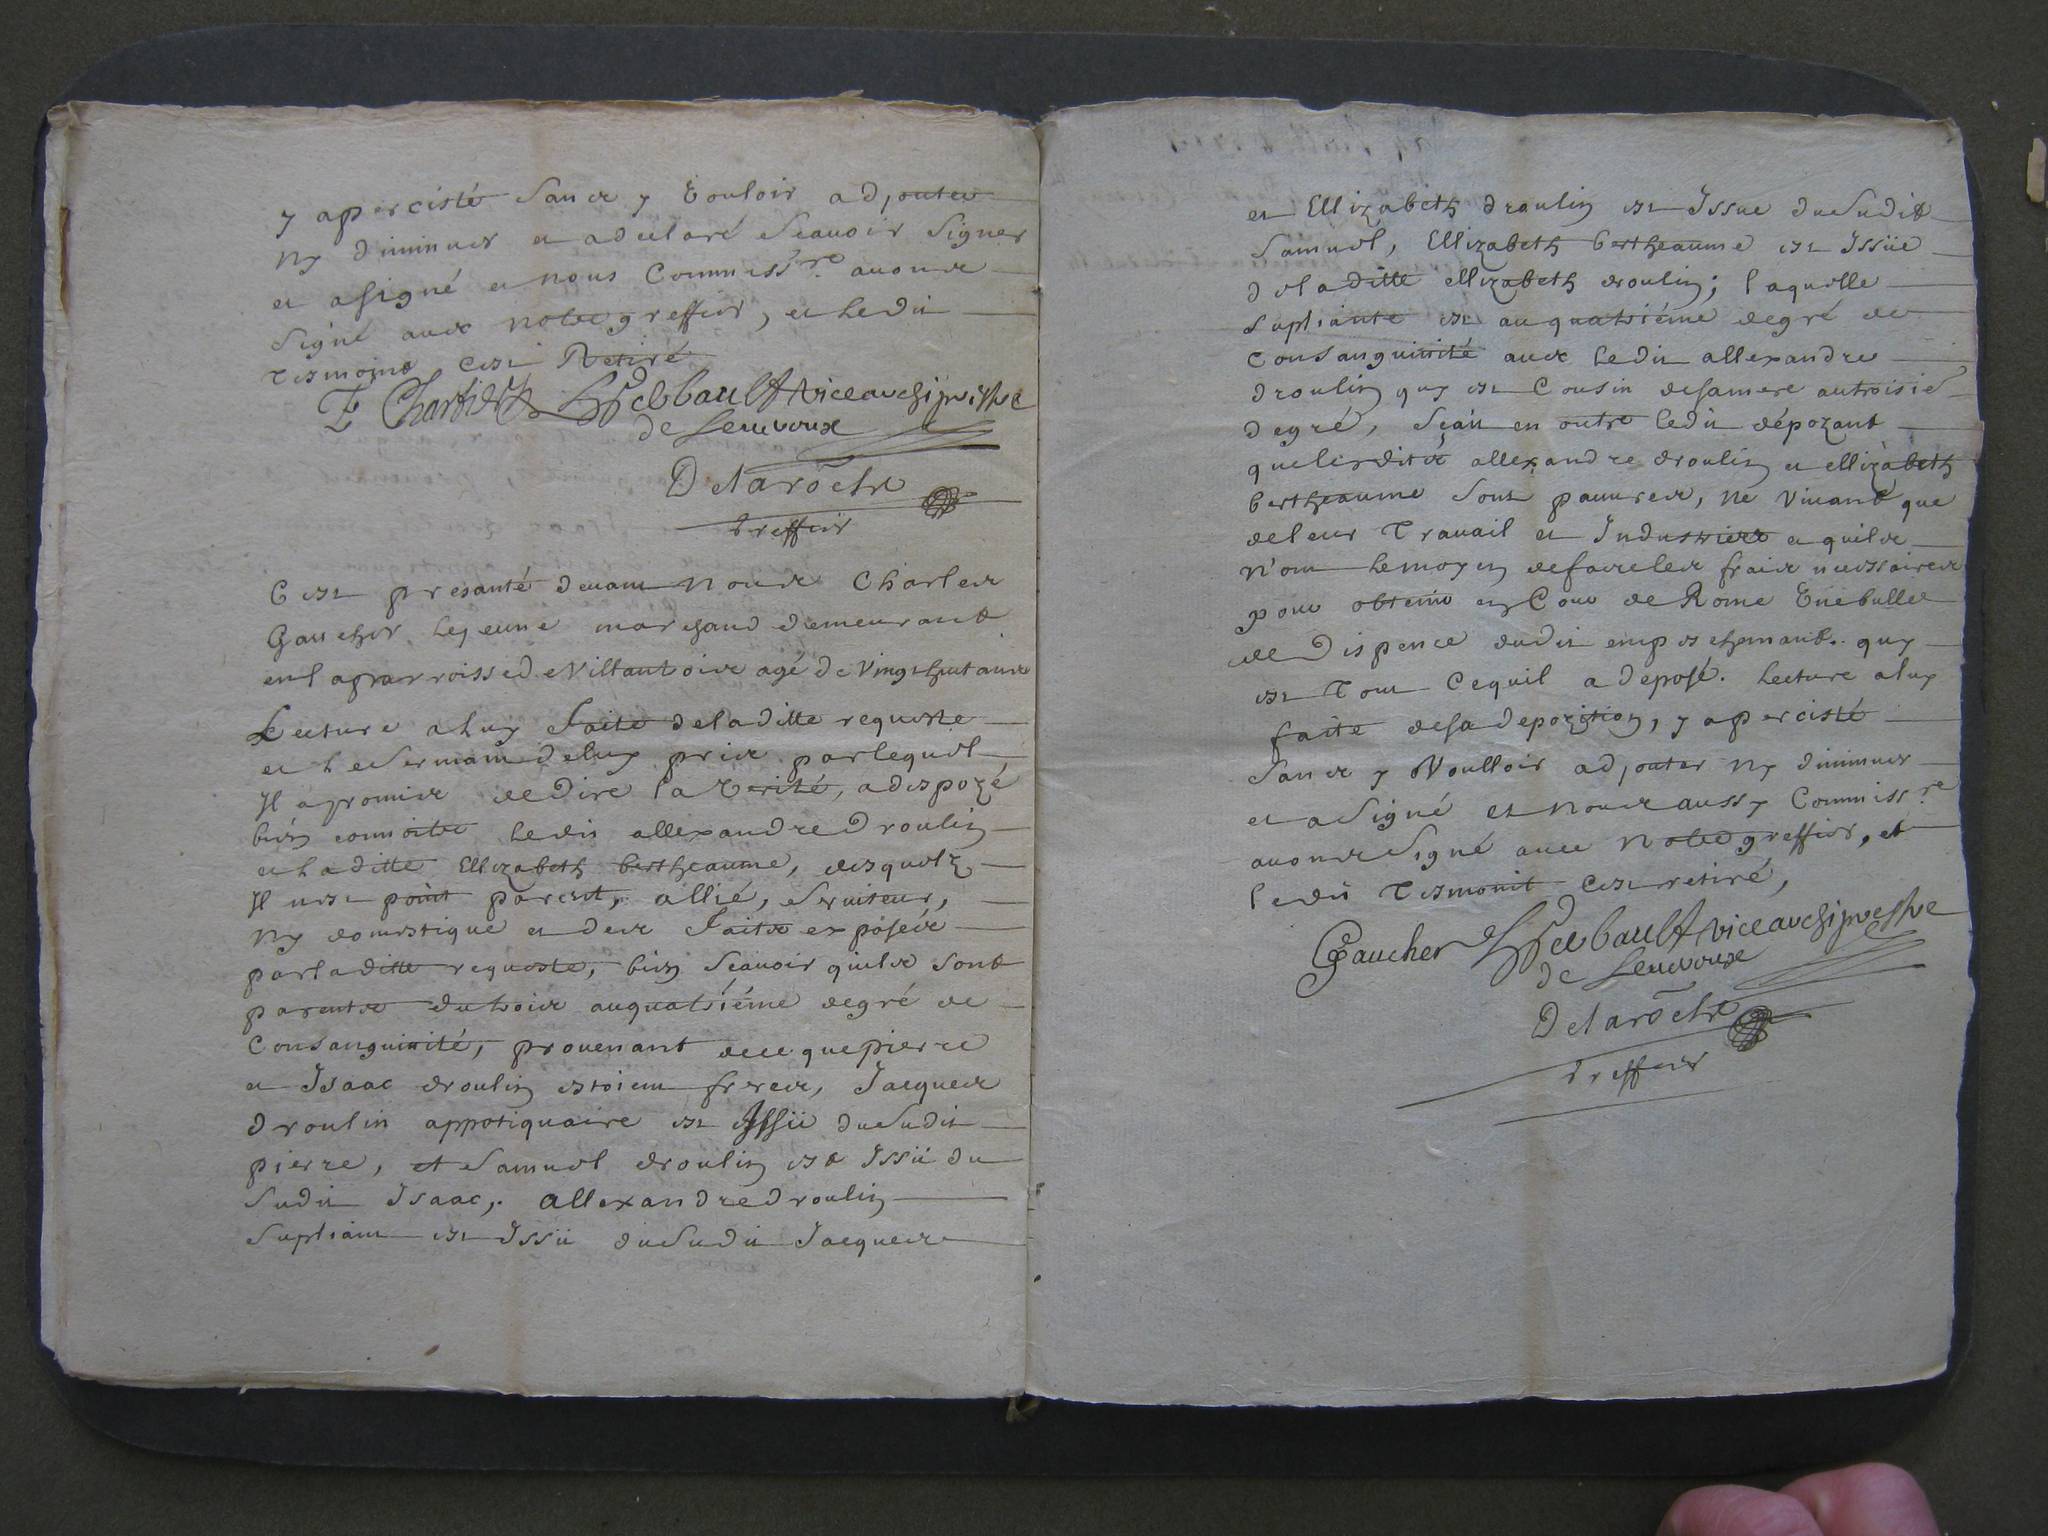 y apercisté Sans y Vouloir adjouter
Ny diminuer et adeclaré Scauoir Signer
et asigné et nous Commiss.re auons
Signé auec notre greffier, et ledit
tesmoins cest Retiré
F Chartier
hebbault vicearchiprestre
de
Delaroche
Greffier
C'est presanté deuant Nous Charles
Gaucher lejeune marchand demeurant
enl aparroissede Villantoirs agé de Vingthuit ans
Lecture aluy Faite deladitte requeste
et le Sermant deluy pris parlequel
Il apromis dedire la Verité, adepozé
bien connoitre ledit allexandre Droulin
et laditte Ellizabeth bertheaume, desquels
Il nest point parent, allié, Seruiteur,
Ny domestique et des Faits exposés
parladitte requeste, bien Scauoir quils sont
parents dutrois auquatriéme degré de
Consanguinité, prouenant dece quepierre
et Isaac droulin estoient freres, Jacques
droulin appotiquaire est Issü duSudit
pierre, et Samuel droulin est Issü du
Sudit Isaac, allexandre droulin
Supliant est Issü duSudit Jacques
et Ellizabeth droulin est Issue duSudit
Samuel, Ellizabeth bertheaume est Issüe
deladitte ellizabeth droulin; laquelle
Supliante est auquatriéme degré de
Consanguinité auec ledit allexandre
droulin quy est Cousin desamere autroisié
degré, Sçait en outre ledit dépozant
quelesdits allexandre droulin et ellizabeth
bertheaume sont pauures, ne Viuant que
deleur Trauail et Industries et quils
n'ont lemoyen defaireles frais necessaires
pour obtenir en Cour de Rome Vnebulle
de Dispence dudit empeschemant. quy
est Tout Cequil a deposé. lecture aluy
faite desa depozition, y apercisté
Sans y Voulloir adjouter Ny diminuer
et aSigné et nous aussy Commiss.re
auons Signé auec Notre greffier, et
ledit Tesmoint cest retiré,
Gaucher
hebbault vicearchiprestre
de
Delaroche
Greffier